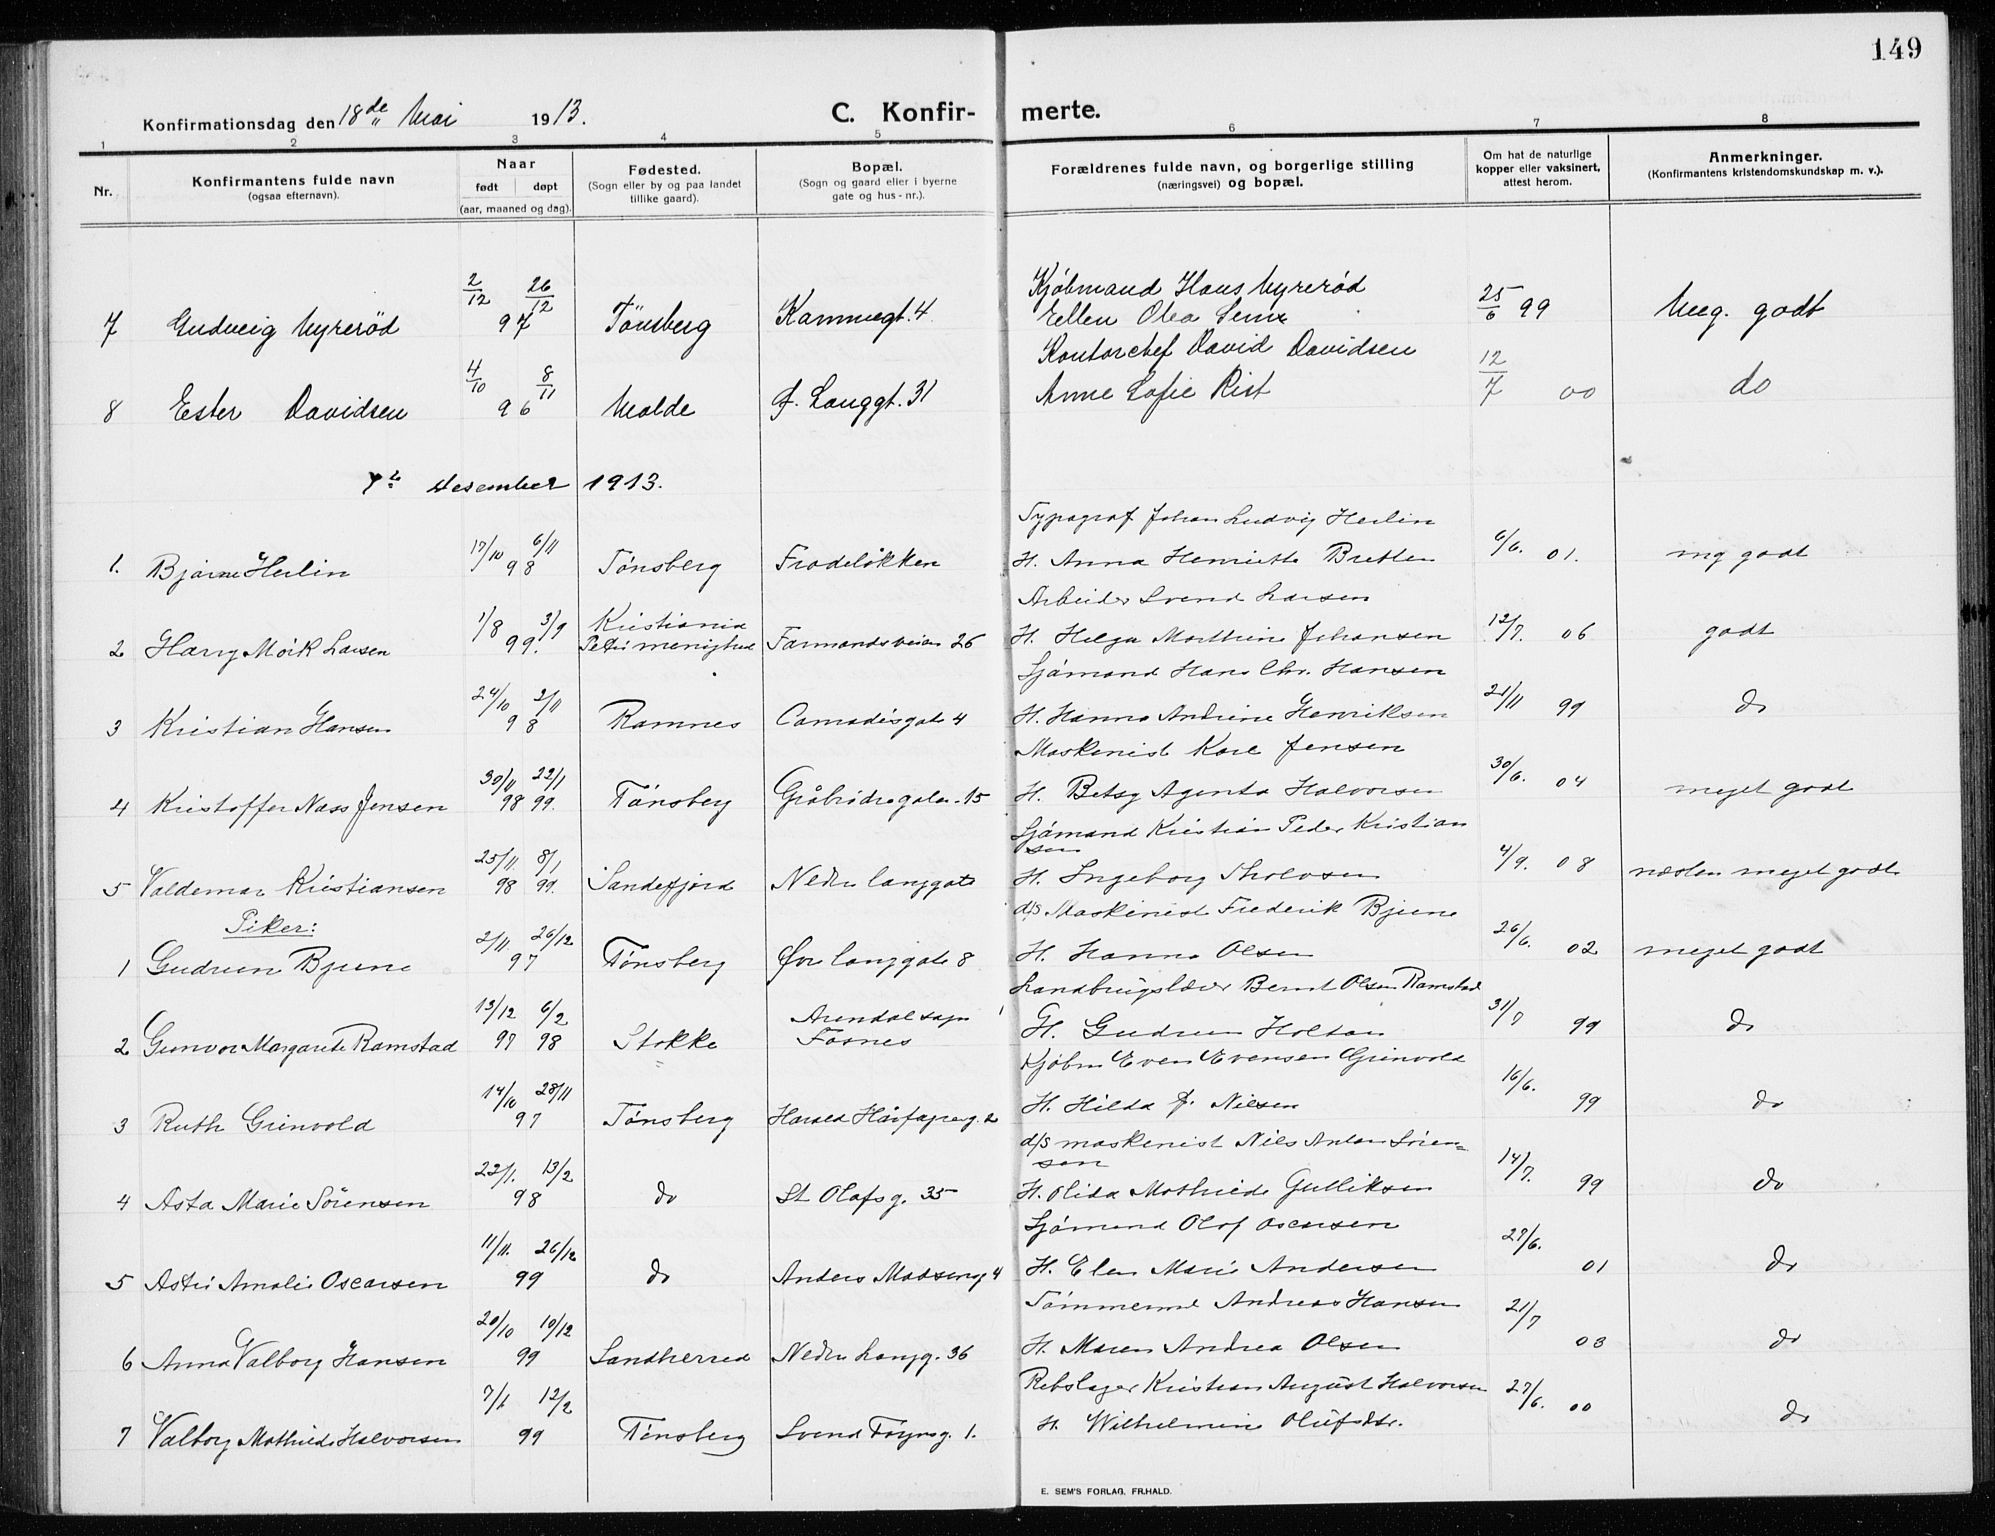 149
Konfirmationsdag den 18de Mai 1913.
C. Konfirmerte.
1 2 3 4 5 6 7 8
Nr.
Konfirmantens fulde navn
(ogsaa efternavn).
Naar
født døpt
(aar, maaned og dag).
Fødested.
(Sogn eller by og paa landet
tillike gaard).
Bopæl.
(Sogn og gaard eller i byerne
gate og hus-nr.).
Forældrenes fulde navn, og borgerlige stilling
(næringsvei) og bopæl.
Om hat de naturlige
kopper eller vaksinert,
attest herom.
Anmerkninger.
(Konfirmantens kristendomskundskap m. v.).
7 Gudveig Myrerød 2/12 26/12 97 Tönsberg 4 Kjöbmand Hans Myrerød
Ellen Olea 25/6 99 Meg. godt
8 Ester Davidsen 4/10 8/11 96 Molde Langgt. 31 Kontorchef David Davidsen
Anne Sofie Rist 12/7 00 do
7de desember 1913.
1. Bjarne Herlin 17/10 6/11 98 Tønsberg Frodeløkken Typograf Johan Ludvig Herlin
H. Anna Henriette Bretten 6/6. 01. mg godt
2 Harry Larsen 1/8 3/9 99. Kristiania
Petri menighed Farmandsveien 26 Arbeider Svend Larsen
H. Helga Mathine Johansen 12/7. 06 godt
3 Kristian Hansen 24/10 2/11 98 Ramnes 4 Sjömand Hans Chr. Hansen
H. Hanna Andrine Henriksen 21/11 99 do
4 Kristoffer Næss Jensen 30/11 22/1 98 99. Tönsberg Gråbrödregaten 15 Maskinist Karl Jensen
H. Betsy Agenta Halvorsen 30/6. 04 meget godt
5 Valdemar Kristiansen 25/11. 8/1 98 99. Sandefjord Nedre langgate Sjömand Kristian Peder Kristian
sen
H. Ingeborg 4/9. 08 næsten meget godt
Piker:
1 Gudrun Bjune 2/11. 26/12 97 Tönsberg Øvre langgate 8 d/s Maskinist Frederik Bjune
H. Hanna Olsen 26/6. 02 meget godt
2 Gunvor Margarete Ramstad 13/12 6/2 97 98 Stokke Arendal sogn
Landbrugslærer Bernt Olsen Ramstad
H. Gudrun Holtan 31/7 99 do
3 Ruth Grinvold 14/10 28/11 97 Tönsberg Harald Hårfagresg. 2 Kjöbm Even Evensen Grinvold
H. Hilda J. Nilsen 16/6. 99 do
4 Asta Marie Sörensen 22/1. 13/2 98 do St Olafsg. 35 d/s maskinist Nils Anton Sören=
sen
H. Olida Mathilde Gulliksen 14/7. 99 do
5 Astri Amalie Oscarsen 11/11. 26/12 99 do Anders Madsensg 4 Sjömand Olaf Oscarsen
H. Elen Marie Andersen 27/6. 01 do
6 Anna Valborg Hansen 20/10 10/12 99 Sandherred Nedre Langg. 36 Tömmermd Andreas Hansen
H. Maren Andrea Olsen 21/7 03 do
7 Valborg Mathilde Halvorsen 7/1 12/2 99 Tönsberg Svend Foynsg. 1. Rebslager Kristian August Halvorsen
H. Wilhelmine Olufsdtr. 27/6. 00 do
E. SEM'S FORLAG. FR.HALD.